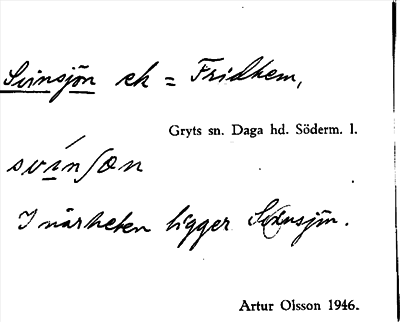 Svinsjön ek = Fridhem,
Gryts sn. Daga hd. Söderm. l.
svínʃөn
I närheten ligger Svinsjön.
Artur Olsson 1946.